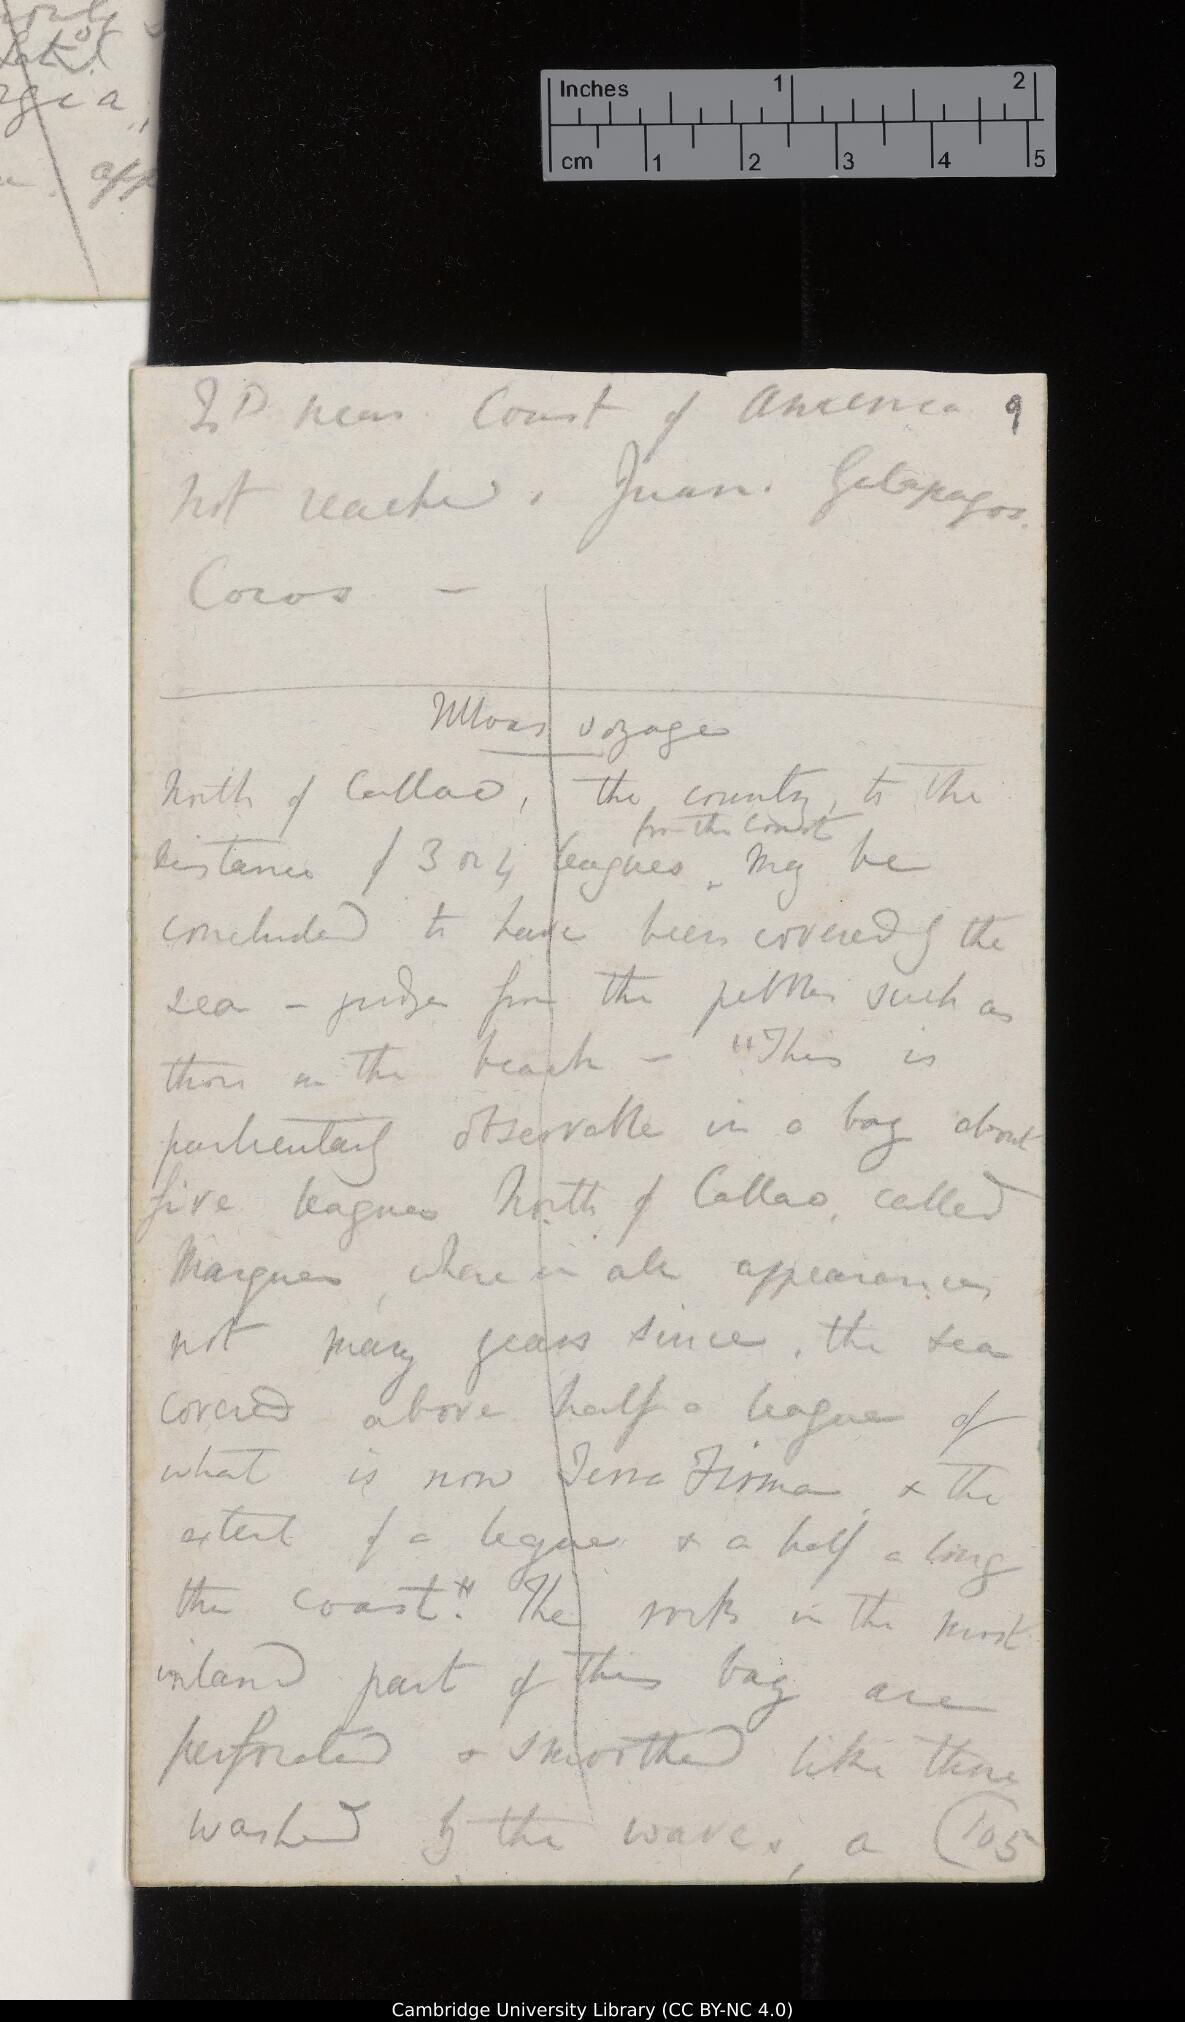 Inches 1 2
cm 1 2 3 4 5
app
Id near Coast of America 9
not reached, Juan. Galapagos.
Cocos —
Ulloas voyage
North of Callao, the country, to the
from the coast
distance of 3 or 4 leagues, may be
concluded to have been covered by the
sea – judge from the pebbles such as
those on the beach – "This is
particularly observable in a bay about
five leagues North of Callao, called
Marques, where in all appearances
not many years since, the sea
covered above half a league of
what is now Terra Firma, & the
extent of a league & a half along
the coast". The rocks in the most
inland part of this bay are
perforated & smoothed like those
washed by the waves, a (105
Cambridge University Library (CC BY-NC 4.0)